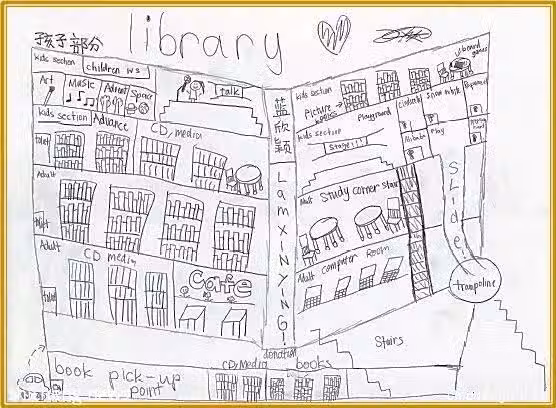 library
孩子部分
kids section
children ws
Art
Music
Animal
Space
talk
kids section
Advance
CD, media
toilet
Adult
toilet
Adult
CD media
toilet
Cafe
蓝欣颖
LamXINYING!
kids section
Picture books
board games
Playground
Cinderella
Snow White
Rapunzel
kids section
Stage!!!
Play
Adult
Study corner
Stair
SLide!
trampoline
Adult
computer Room
Stairs
donation
CD/Media
books
book pick-up
point